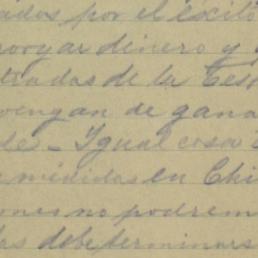 ados por el éxito
dinero y
tradas de la Tes
vengan de gana
de - Igual cosa
medidas en Chi
ones no podrem
las debe terminars